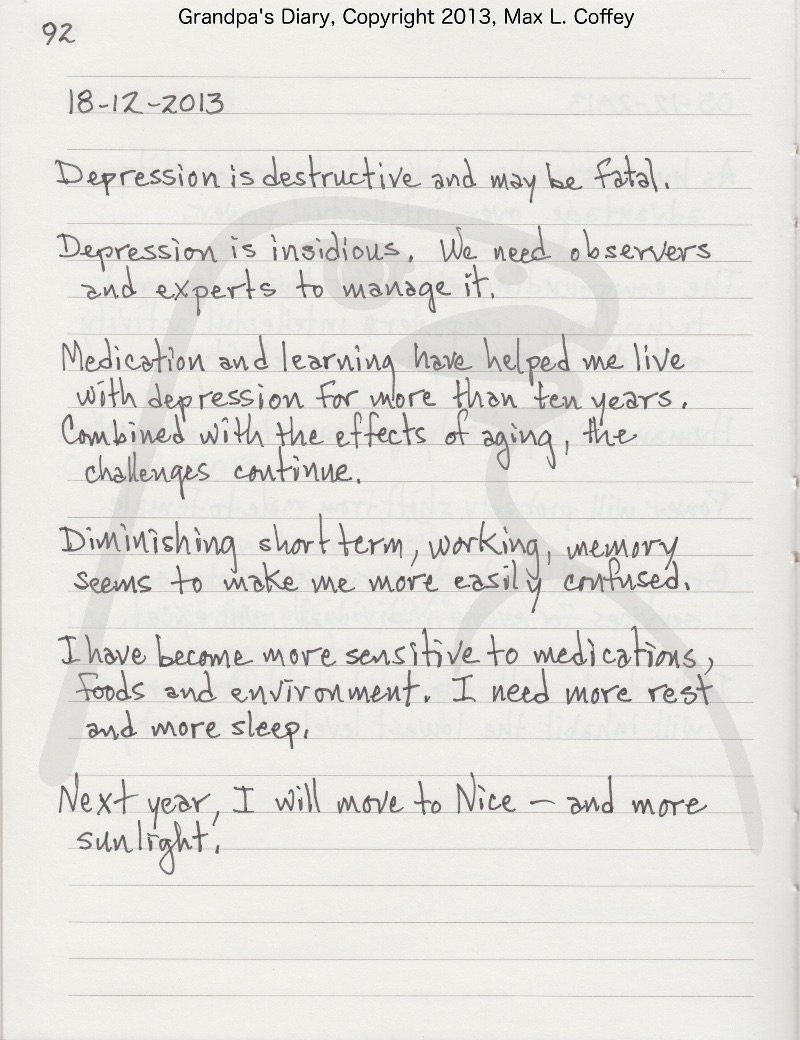 Grandpa's Diary, Copyright 2013, Max L. Coffey
92
18-12-2013
Depression is destructive and may be fatal.
Depression is insidious. We need observers
and experts to manage it.
Medication and learning have helped me live
with depression for more than ten years.
Combined with the effects of aging, the
challenges continue.
Diminishing short term, working, memory
seems to make me more easily confused.
I have become more sensitive to medications,
foods and environment. I need more rest
and more sleep.
Next year, I will move to Nice – and more
sunlight.